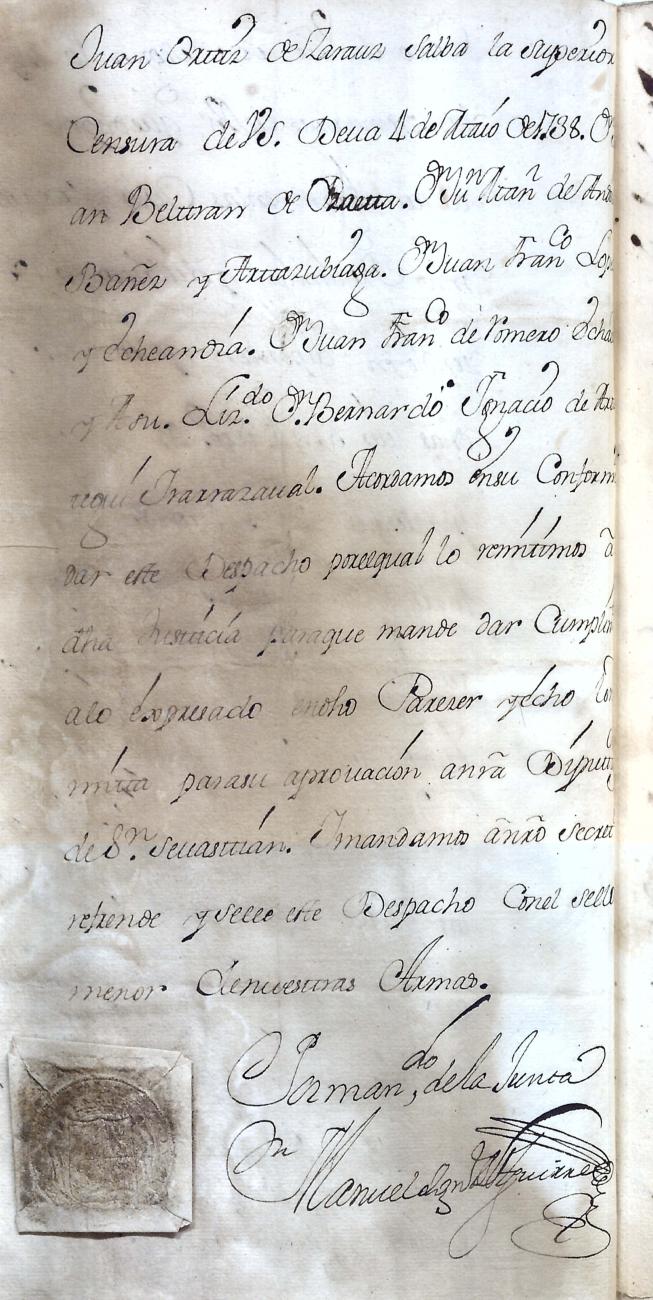 Juan Ortiz de Zarauz salba la superior
Censura de VS. Deva 4 de Maio de 1738. Dn
an Beltran de Yraeta. Dn Jun Atañ de And
Bañez y Artazubiaga. Dn Juan Franco Lop
y Echeandia. Dn Juan Franco de Romero Echa
y Asu. Lizdo Dn Bernardo Ygnacio de Ar
regui Irarrazaval. Acordamos en su Conformi
dar este Despacho por el qual lo remitimos a
dha Justicia paraque mande dar Cumplim
alo expresado en dho Parezer y echo
mita parasu aprovacion anra Diputt
de Sn. Sevasttian. I mandamos anro secret
refrende y selle este Despacho Conel sello
menor de nuestras Armas.
Por mando, de la Junta
Dn Manuel Ign de Aguirre